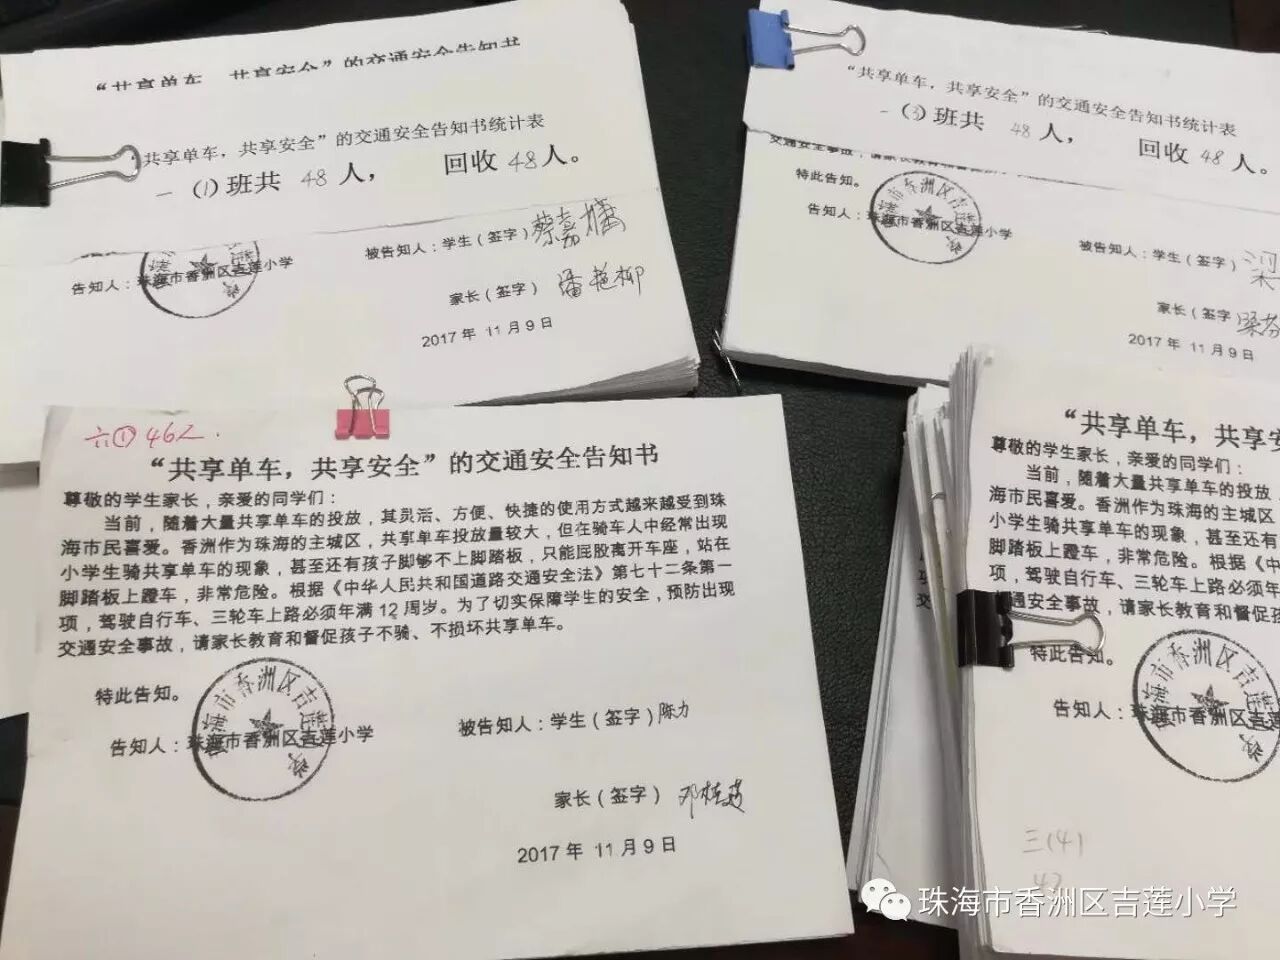 “共享单车，共享安全”的交通安全告知书
“共享单车，共享安全”的交通安全告知书统计表
一（1）班共 48 人， 回收 48 人。
告知人：珠海市香洲区吉莲小学
被告知人：学生（签字）蔡嘉
家长（签字） 潘艳柳
2017 年 11 月 9 日
“共享单车，共享安全”的交通安全告知书统计表
一（3）班共 48 人， 回收 48 人。
交通安全事故，请家长教育
特此告知。
告知人：珠海市香洲区吉莲小学
被告知人：学生（签字）梁
家长（签字
2017 年 11 月 9 日
六① 46人.
“共享单车，共享安全”的交通安全告知书
尊敬的学生家长，亲爱的同学们：
当前，随着大量共享单车的投放，其灵活、方便、快捷的使用方式越来越受到珠
海市民喜爱。香洲作为珠海的主城区，共享单车投放量较大，但在骑车人中经常出现
小学生骑共享单车的现象，甚至还有孩子脚够不上脚踏板，只能屁股离开车座，站在
脚踏板上蹬车，非常危险。根据《中华人民共和国道路交通安全法》第七十二条第一
项，驾驶自行车、三轮车上路必须年满 12 周岁。为了切实保障学生的安全，预防出现
交通安全事故，请家长教育和督促孩子不骑、不损坏共享单车。
特此告知。
告知人：珠海市香洲区吉莲小学
被告知人：学生（签字）陈力
家长（签字） 邓桂
2017 年 11 月 9 日
“共享单车，共享安
尊敬的学生家长，亲爱的同学们：
当前，随着大量共享单车的投放，
海市民喜爱。香洲作为珠海的主城区
小学生骑共享单车的现象，甚至还有
脚踏板上蹬车，非常危险。根据《中
项，驾驶自行车、三轮车上路必须年
通安全事故，请家长教育和督促孩
特此告知。
告知人：珠海市香洲区吉莲小学
三(4)
珠海市香洲区吉莲小学